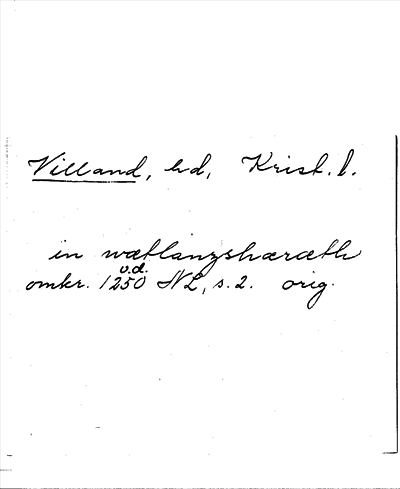 Villand, hd, Krist. l.
in wætlanzshæræth
v.d.
omkr. 1250 NL, s. 2. orig.